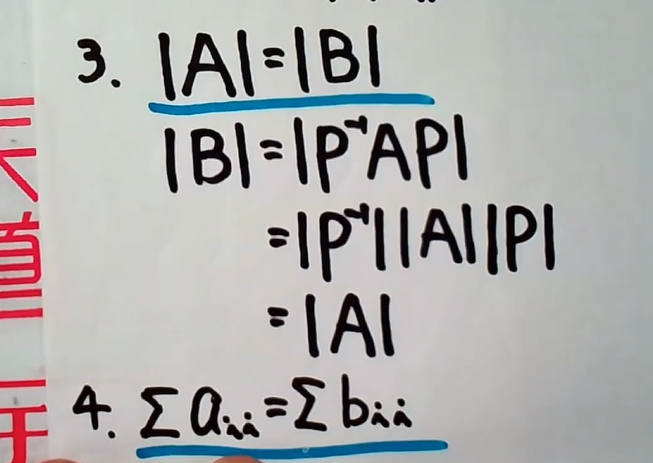 3. |A|=|B|
|B|=|P⁻¹AP|
=|P⁻¹||A||P|
=|A|
4. Σaᵢᵢ=Σbᵢᵢ